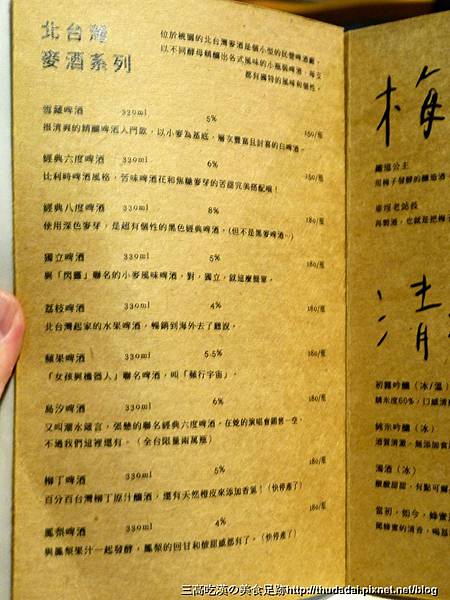 北台灣
麥酒系列
位於桃園的北台灣麥酒是個小型的民營啤酒廠，
以不同酵母精釀出各式風味的小瓶裝啤酒，每支
都有獨特的風味和個性。
雪麗啤酒 330ml 5% 150/瓶
很清爽的精釀啤酒入門款，以小麥為基底，層次豐富且討喜的白啤酒。
經典六度啤酒 330ml 6% 150/瓶
比利時啤酒風格，苦味啤酒花和焦糖麥芽的苦甜完美搭配哦！
經典八度啤酒 330ml 8%
使用深色麥芽，是超有個性的黑色經典啤酒。(但不是黑麥啤酒～)
獨立啤酒 330ml 5% 180/瓶
與「閃靈」聯名的小麥風味啤酒，對，獨立，就這麼簡單。
荔枝啤酒 330ml 4% 180/瓶
北台灣起家的水果啤酒，暢銷到海外去了聽說。
蘋果啤酒 330ml 5.5% 180/瓶
「女孩與機器人」聯名啤酒，叫「蘋行宇宙」。
島汐啤酒 330ml 6% 180/瓶
又叫潮水箴言，張懸的聯名經典六度啤酒。在她的演唱會銷售一空，
不過我們這裡還有。（全台限量兩萬瓶）
柳丁啤酒 330ml 5% 180/瓶
百分百台灣柳丁原汁釀酒，還有天然橙皮來添加香氣！(快停產了)
鳳梨啤酒 330ml 4% 180/瓶
與鳳梨果汁一起發酵，鳳梨的回甘和酸甜感都有了。(快停產了)
梅
公主
用梅子發酵的釀造酒
老站長
再製酒，也就是把梅
清
初霧吟釀（冰/溫）
精米度60%，口感清
純米吟釀（冰）
酒質清澈，無添加食
濁酒（冰）
酸酸甜甜，有點可爾
當初，如今，蜂蜜
聞蜂蜜的清香，喝基
三高吃漢の美食足跡http://thudadai.pixnet.net/blog